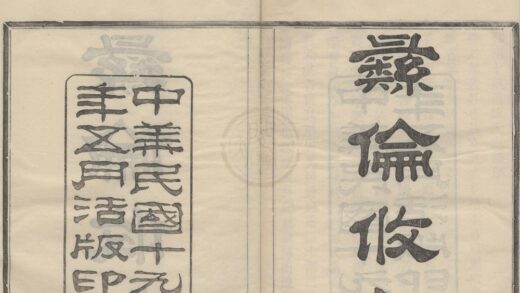 彝倫攸
中華民國十九
年五月活版印